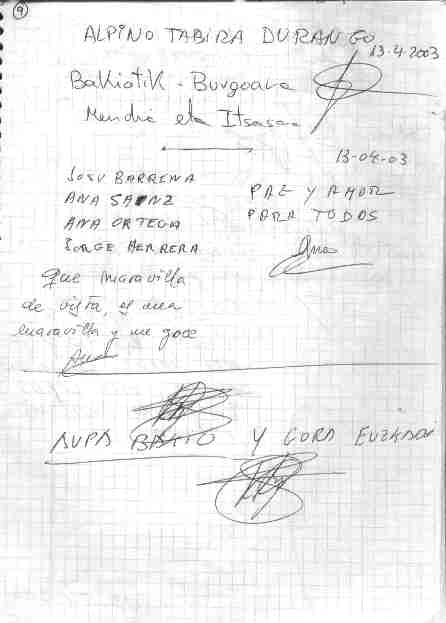 9
ALPINO TABIRA DURANGO
13-4-2003
Bakiotik - Burgoara
Mendia eta Itsasoa
13-04-03
JOSU BARRENA
ANA SAENZ
PAZ Y AMOR
ANA ORTEGA
PARA TODOS
JORGE HERRERA
Ana
Que maravilla
de vista, es una
maravilla y un goce
AUPA BAKIO Y GORA EUZKADI